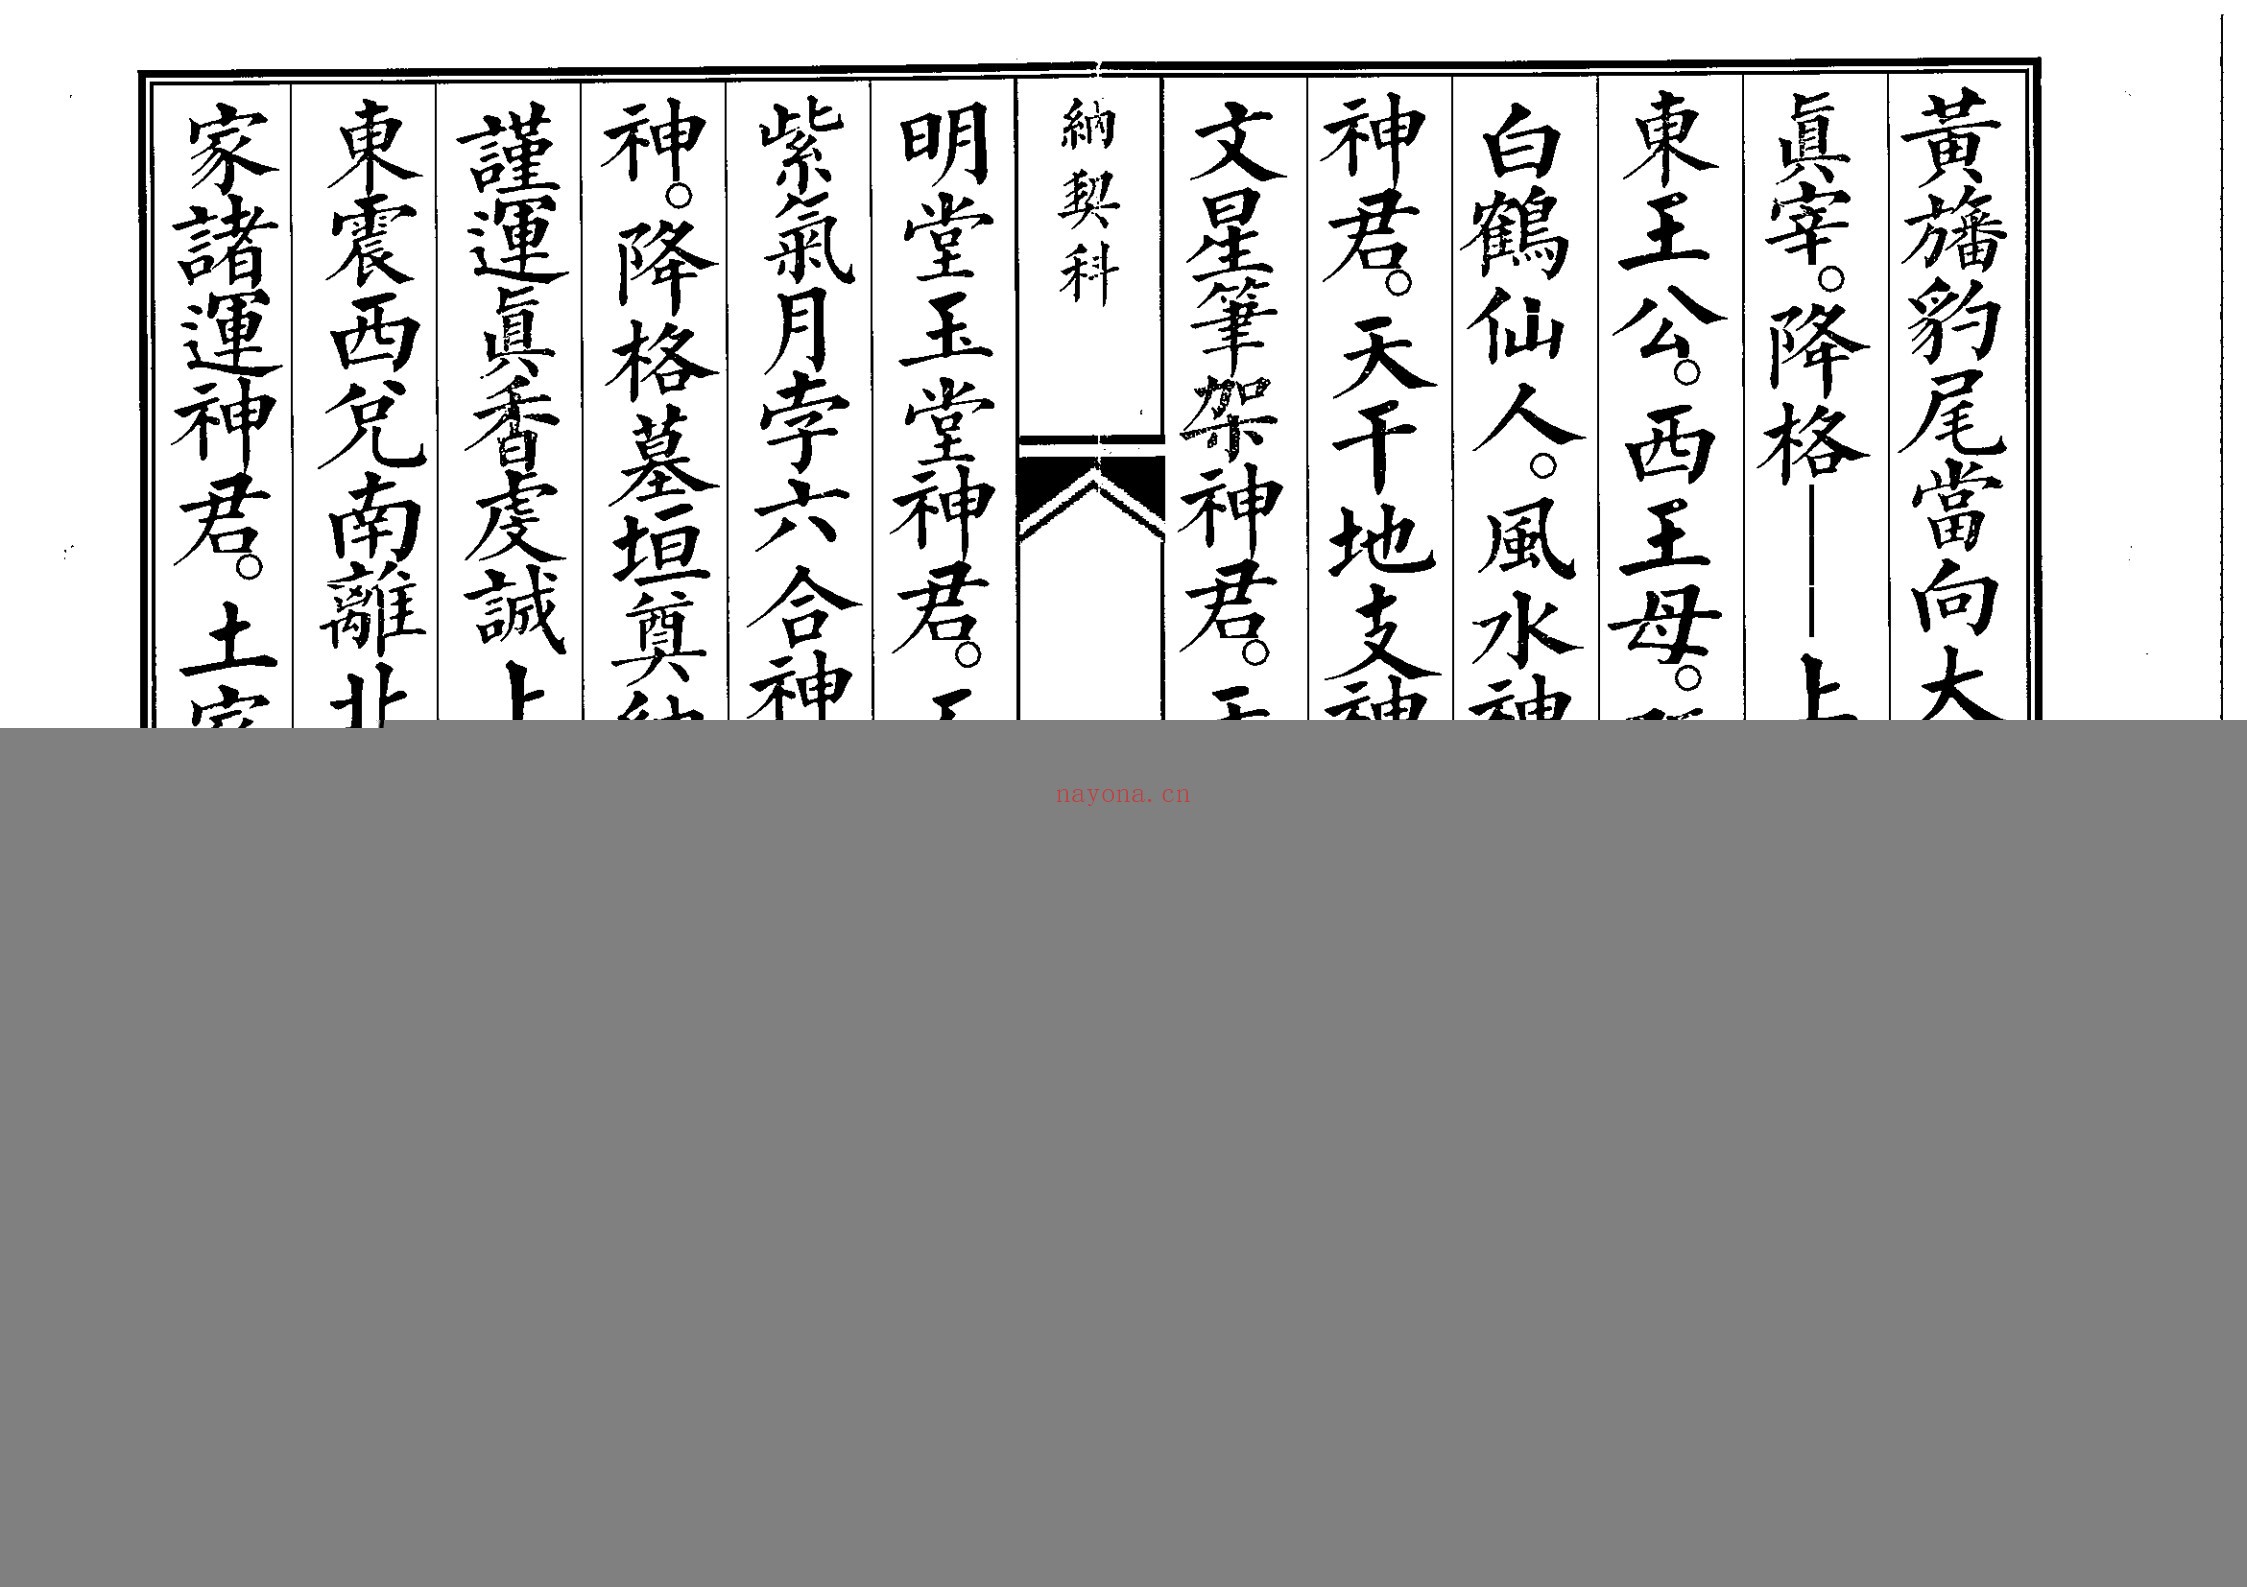 黃旛豹尾當向大
眞宰。降格——上
東王公。西王母。
白鶴仙人。風水神
神君。天干地支神
文星筆架神君。
納契科
明堂玉堂神君。
紫氣月孛六合神
神。降格墓垣奠
謹運眞香虔誠上
東震西兌南離北
家諸運神君。土家
nayona.cn